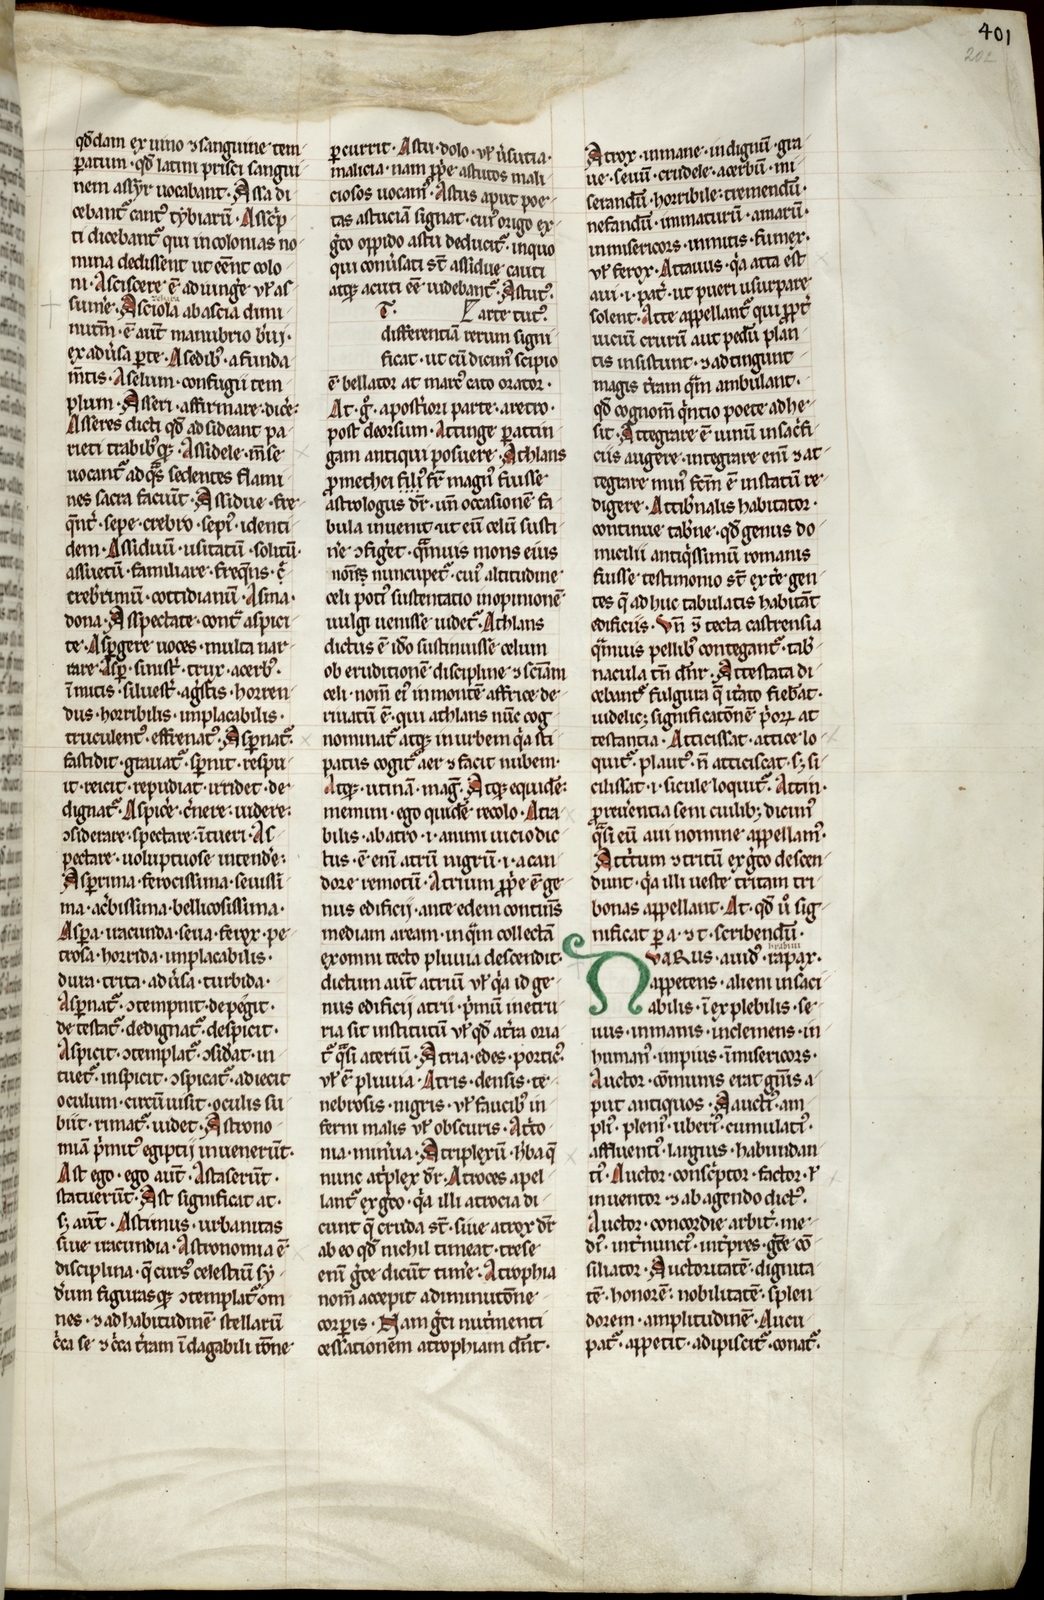 401
202
qđdam ex uino ⁊ sanguine tem
ꝑatum · qđ latini prisci sangui
nem assỹr uocabant · Assa di
cebant᷑ cant᷒ tybiarũ · Assc̓p
ti dicebant᷑ qui in colonias no
mina dedissent ut eẽnt colo
ni · Asciscere ẽ adiunge ul̓ as
sum̓e · Asciola ab ascia dimi
nutiũ · ẽ aut̃ manubrio br̓ui ·
ex adu̓sa ꝑte · Asedib᷒ · a funda
m̃tis · Aselum · confugii tem
plum · Asseri · affirmare · dic̓e ·
Asseres dicti qđ ad sideant pa
rieti trabib᷒qꝫ · Assidele · m̃se
uocant᷑ ad q̃s sedentes flami
nes sacra faciũt · Assidue · fre
q̃nt̓ · sepe · crebro · sepi᷒ · identi
dem · Assiduũ · usitatũ · solitũ ·
assuetũ · familiare · freq̃ns · c̓
creb̓rimũ · cottidianũ · Asina ·
dona · Asspectate · cont̃ aspici
te · Asp̓gere uoces · multa nar
rare · Asp̓ · sinist̓ · trux · acerb᷒ ·
ĩmitis · siluest̓ · ag̓stis · horren
dus · horribilis · implacabilis ·
truculent᷒ · effrenat᷒ · Asp̓nat᷑ ·
fastidit · grauat᷑ · sp̓nit · respu
it · reicit · repudiat · irridet · de
dignat᷑ · Aspic̓e · c̓nere · uidere ·
ↄsiderare · spectare · ĩtueri · As
pectare · uoluptuose intend̓e ·
Asp̓rima · ferocissima · seuissi
ma · ac̓bissima · bellicosissima ·
Asp̓a · iracunda · seua · ferox · pe
trosa · horrida · implacabilis ·
dura · trita · adu̓sa · turbida ·
Asp̓nat᷑ · ↄtempnit · depegit ·
detestat᷑ · dedignat᷑ · despicit ·
Aspicit · ↄtemplat᷑ · ↄsid̓at · in
tuet᷑ · inspicit · ↄspicat᷑ · adiecit
oculum · circũuisit · oculis su
biit · rimat᷑ · uidet · Astrono
miã p̓mit᷒ egiptij inuenerũt ·
Ast ego · ego aut̃ · Astaserũt ·
statuerũt · Ast significat at ·
sꝫ aut̃ · Astimus · urbanitas
siue iracundia · Astronomia ẽ
disciplina · q̃ curs᷒ celestiũ sy
d̓um figurasqꝫ ↄtemplat᷑ om
nes · ⁊ ad habitudinẽ stellarũ
c̓ca se ⁊ c̓ca t̓ram ĩdagabili rõne
ꝑcurrit · Astu · dolo · ul̓ u̓sutia ·
malicia · nam ꝓp̓e astutos mali
ciosos uocam᷒ · Astus aput poe
tas astuciã signat · cui᷒ origo ex
g̓co oppido astu deducit᷑ · in quo
qui conu̓sati st̃ assidue cauti
atqꝫ acuti eẽ uidebant᷑ · Astut᷒ ·
T · arte tut᷒ ·
differentiã rerum signi
ficat · ut cũ dicim᷒ scipio
ẽ bellator at marc᷒ cato orator ·
At · g̓ · a post̓iori parte · a retro ·
post deorsum · Attinge ꝑattin
gam antiqui posuere · Athlans
ꝓmethei fili᷒ · fr̃ magn᷒ fuisse
astrologus dr̃ · uñ occasionẽ fa
bula inuenit · ut eũ celũ susti
n̓e ↄfig̓et · q̃muis mons eius
nõis nuncupet᷑ · cui᷒ altitudine
celi poti᷒ sustentatio in opinionẽ
uulgi uenisse uidet᷑ · Athlans
dictus ẽ iđo sustinuisse celum
ob eruditionẽ discipline ⁊ sciam
celi · nom̃ ei᷒ in montẽ affrice de
riuatũ ẽ · qui athlans nũc cog
nominat᷑ atqꝫ in urbem q̓a sti
patus cogit᷑ aer ⁊ facit nubem ·
Atqꝫ · utinam · mag̓ · Atqꝫ equidẽ ·
memini · ego quidẽ recolo · Atra
bilis · ab atro · i · animi uicio dic
tus · ẽ eni᷒ atrũ nigrũ · i · a can
dore remotũ · Atrium ꝓp̓e ẽ ge
nus edificij · ante edem continẽs
mediam aream · in q̃m collectã
ex omni tecto pluuia descendit ·
dictum aut̃ atriũ ul̓ q̓a id ge
nus edificij atrii · p̓mũ in etru
ria sit institutũ ul̓ qđ at̓ra oria
t᷑ q̃si ateriũ · Atria · edes · portic᷒ ·
ul̓ ẽ pluuia · Atris · densis · te
nebrosis · nigris · ul̓ faucib᷒ in
ferni malis ul̓ obscuris · At̓to
nia · min̓ua · Atriplexũ · h̓ba q̃
nunc at̓plex dr̃ · Atroces apel
lant᷑ ex g̓co · q̓a illi atrocia di
cunt q̃ cruda st̃ · siue atrox dr̃
ab eo qđ nichil timeat · trese
eni᷒ g̓ce dicũt tim̓e · Atrophia
nom̃ accepit a diminutõne
corp̓is · Nam g̓ci nut̓menti
cessationem atrophiam dñt ·
Atrox · inmane · indignũ · gra
ue · seuũ · crudele · acerbũ · mi
serandũ · horribile · tremendũ ·
nefandũ · inmaturũ · amarũ ·
inmisericors · inmitis · funus ·
ul̓ ferox · Attauus · q̓a atta est
aui · i · pat̓ · ut pueri usurpare
solent · Atte appellant᷑ qui ꝓpt̓
uiciũ crurũ aut pedũ plan
tis insistunt · ⁊ adtingunt
magis t̓ram q̃m ambulant ·
qđ cognom̃ q̓ntio poete adhe
sit · Attegrare ẽ uinũ in sac̓fi
ciis augere · integrare eni᷒ ⁊ at
tegrare min᷒ fc̃m ẽ in statũ re
digere · Attib̓nalis habitator ·
continue tab̓ne · qđ genus do
micilii antiq̓ssimũ romanis
fuisse testimonio st̃ ext̓e gen
tes q̃ adhuc tabulatis habitãt
edificiis · Vñ ⁊ tecta castrensia
q̃muis pellib᷒ contegant᷑ · tab̓
nacula tñ dñr · Attestata di
cebant᷑ fulgura q̃ it̓ato fiebãt ·
uidelicꝫ significatõnẽ p̓orꝝ at
testantia · Atticissat · attice lo
quit᷑ · plaut᷒ · ñ atticiscat · sꝫ si
cilissat · i · sicule loquit᷑ · Attin ·
ꝑreuerentia seni cuilibꝫ dicim᷒
q̃si eũ aui nomine appellam᷒ ·
Att̓tum ⁊ tritũ ex g̓co descen
dunt · q̓a illi ueste tritam tri
bonas appellant · At · qđ u̓o sig
nificat ꝑ a · ⁊ t · scribendũ ·
habiui
VARUS · auid᷒ · rapax ·
appetens · alieni insaci
abilis · ĩexplebilis · se
uus · inmanis · inclemens · in
human᷒ · impius · ĩmisericors ·
Auctor · cõmunis erat gñis a
put antiquos · Aauct᷒ · am
pl᷒ · plen᷒ · uberi᷒ · cumulat᷒ ·
affluent᷒ · largius · habundan
t᷒ · Auctor · consc̓ptor · factor · ul̓
inuentor · ⁊ ab agendo dict᷒ ·
Auctor · concordie · arbit̓ · me
di᷒ · int̓nunci᷒ · int̓pres · g̃tie cõ
siliator · Auctoritatẽ · dignita
tẽ · honorẽ · nobilitatẽ · splen
dorem · amplitudinẽ · Aucu
pat᷑ · appetit · adipiscit᷑ · conat᷑ ·